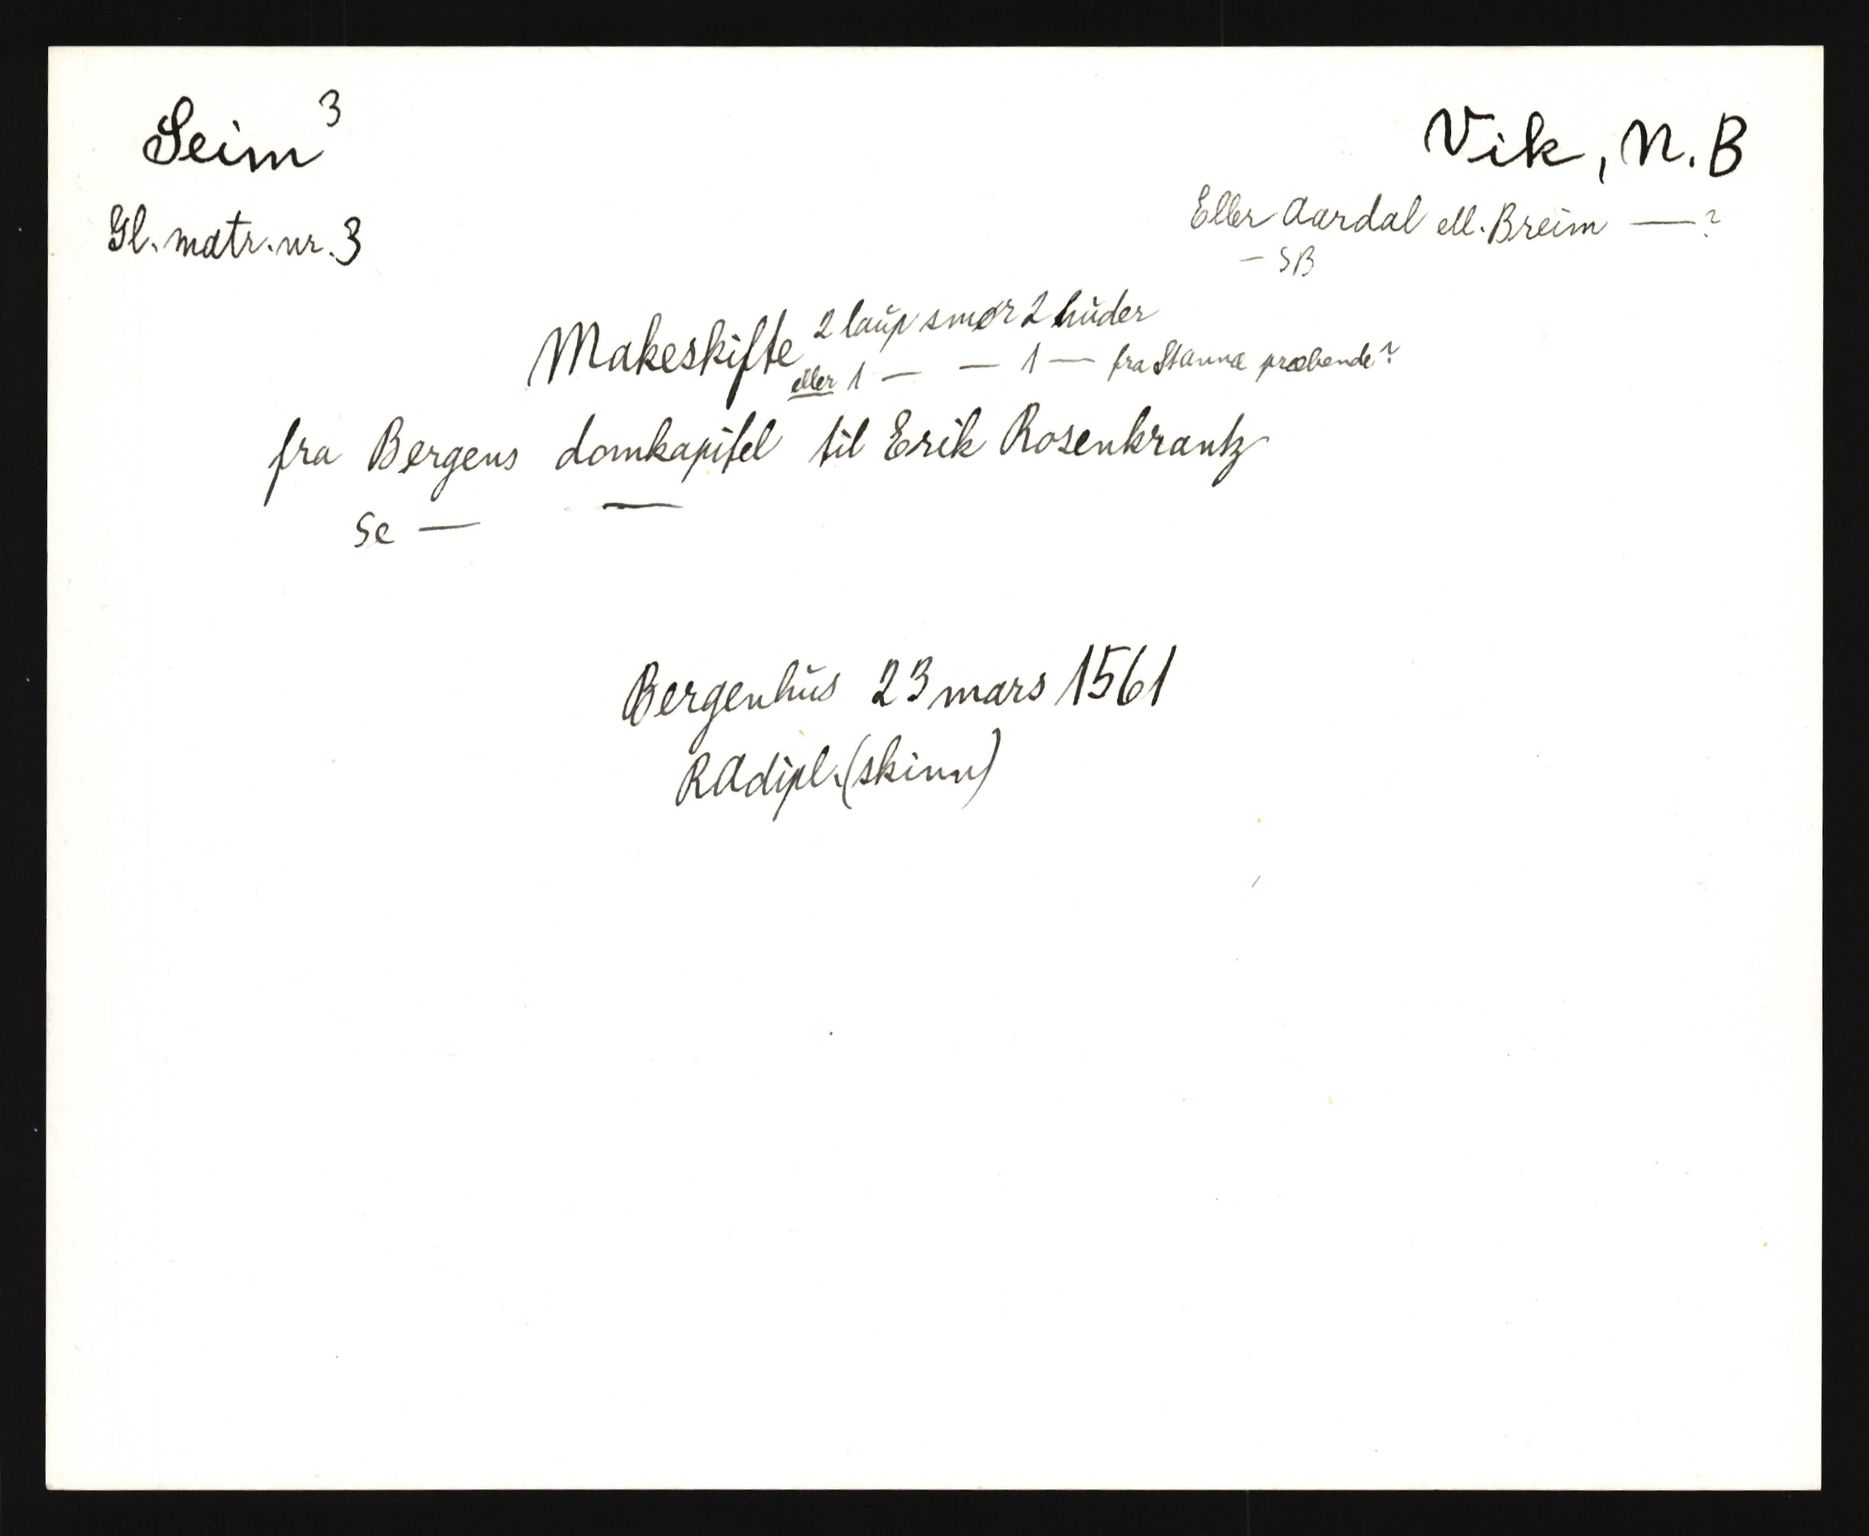 Seim 3
Vik, N. B
Gl. matr. nr. 3
Eller Aardal ell. Breim — ?
— SB
Makeskifte 2 laup smør 2 huder
eller 1 — — 1 — fra Stavnæ præbende?
fra Bergens domkapitel til Erik Rosenkrantz
Se — —
Bergenhus 23 mars 1561
RAdipl. (skinn)